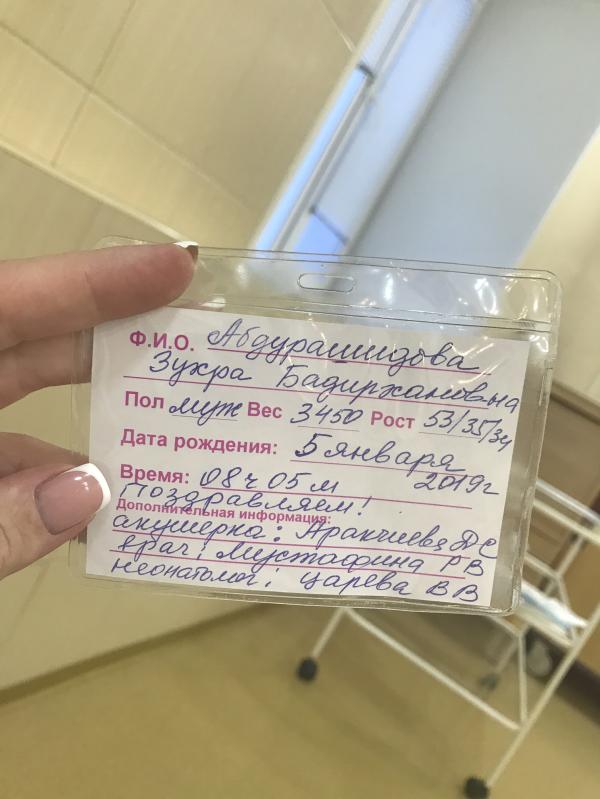 Ф.И.О. Абдурашидова
Зухра Бадиржановна
Пол муж Вес 3450 Рост 53/35/34
Дата рождения: 5 января
2019г
Время: 08ч 05м
Поздравляем!
Дополнительная информация:
акушерка: Аракчиева ДС
врач: Мустафина РВ
неонатолог: Царева ВВ